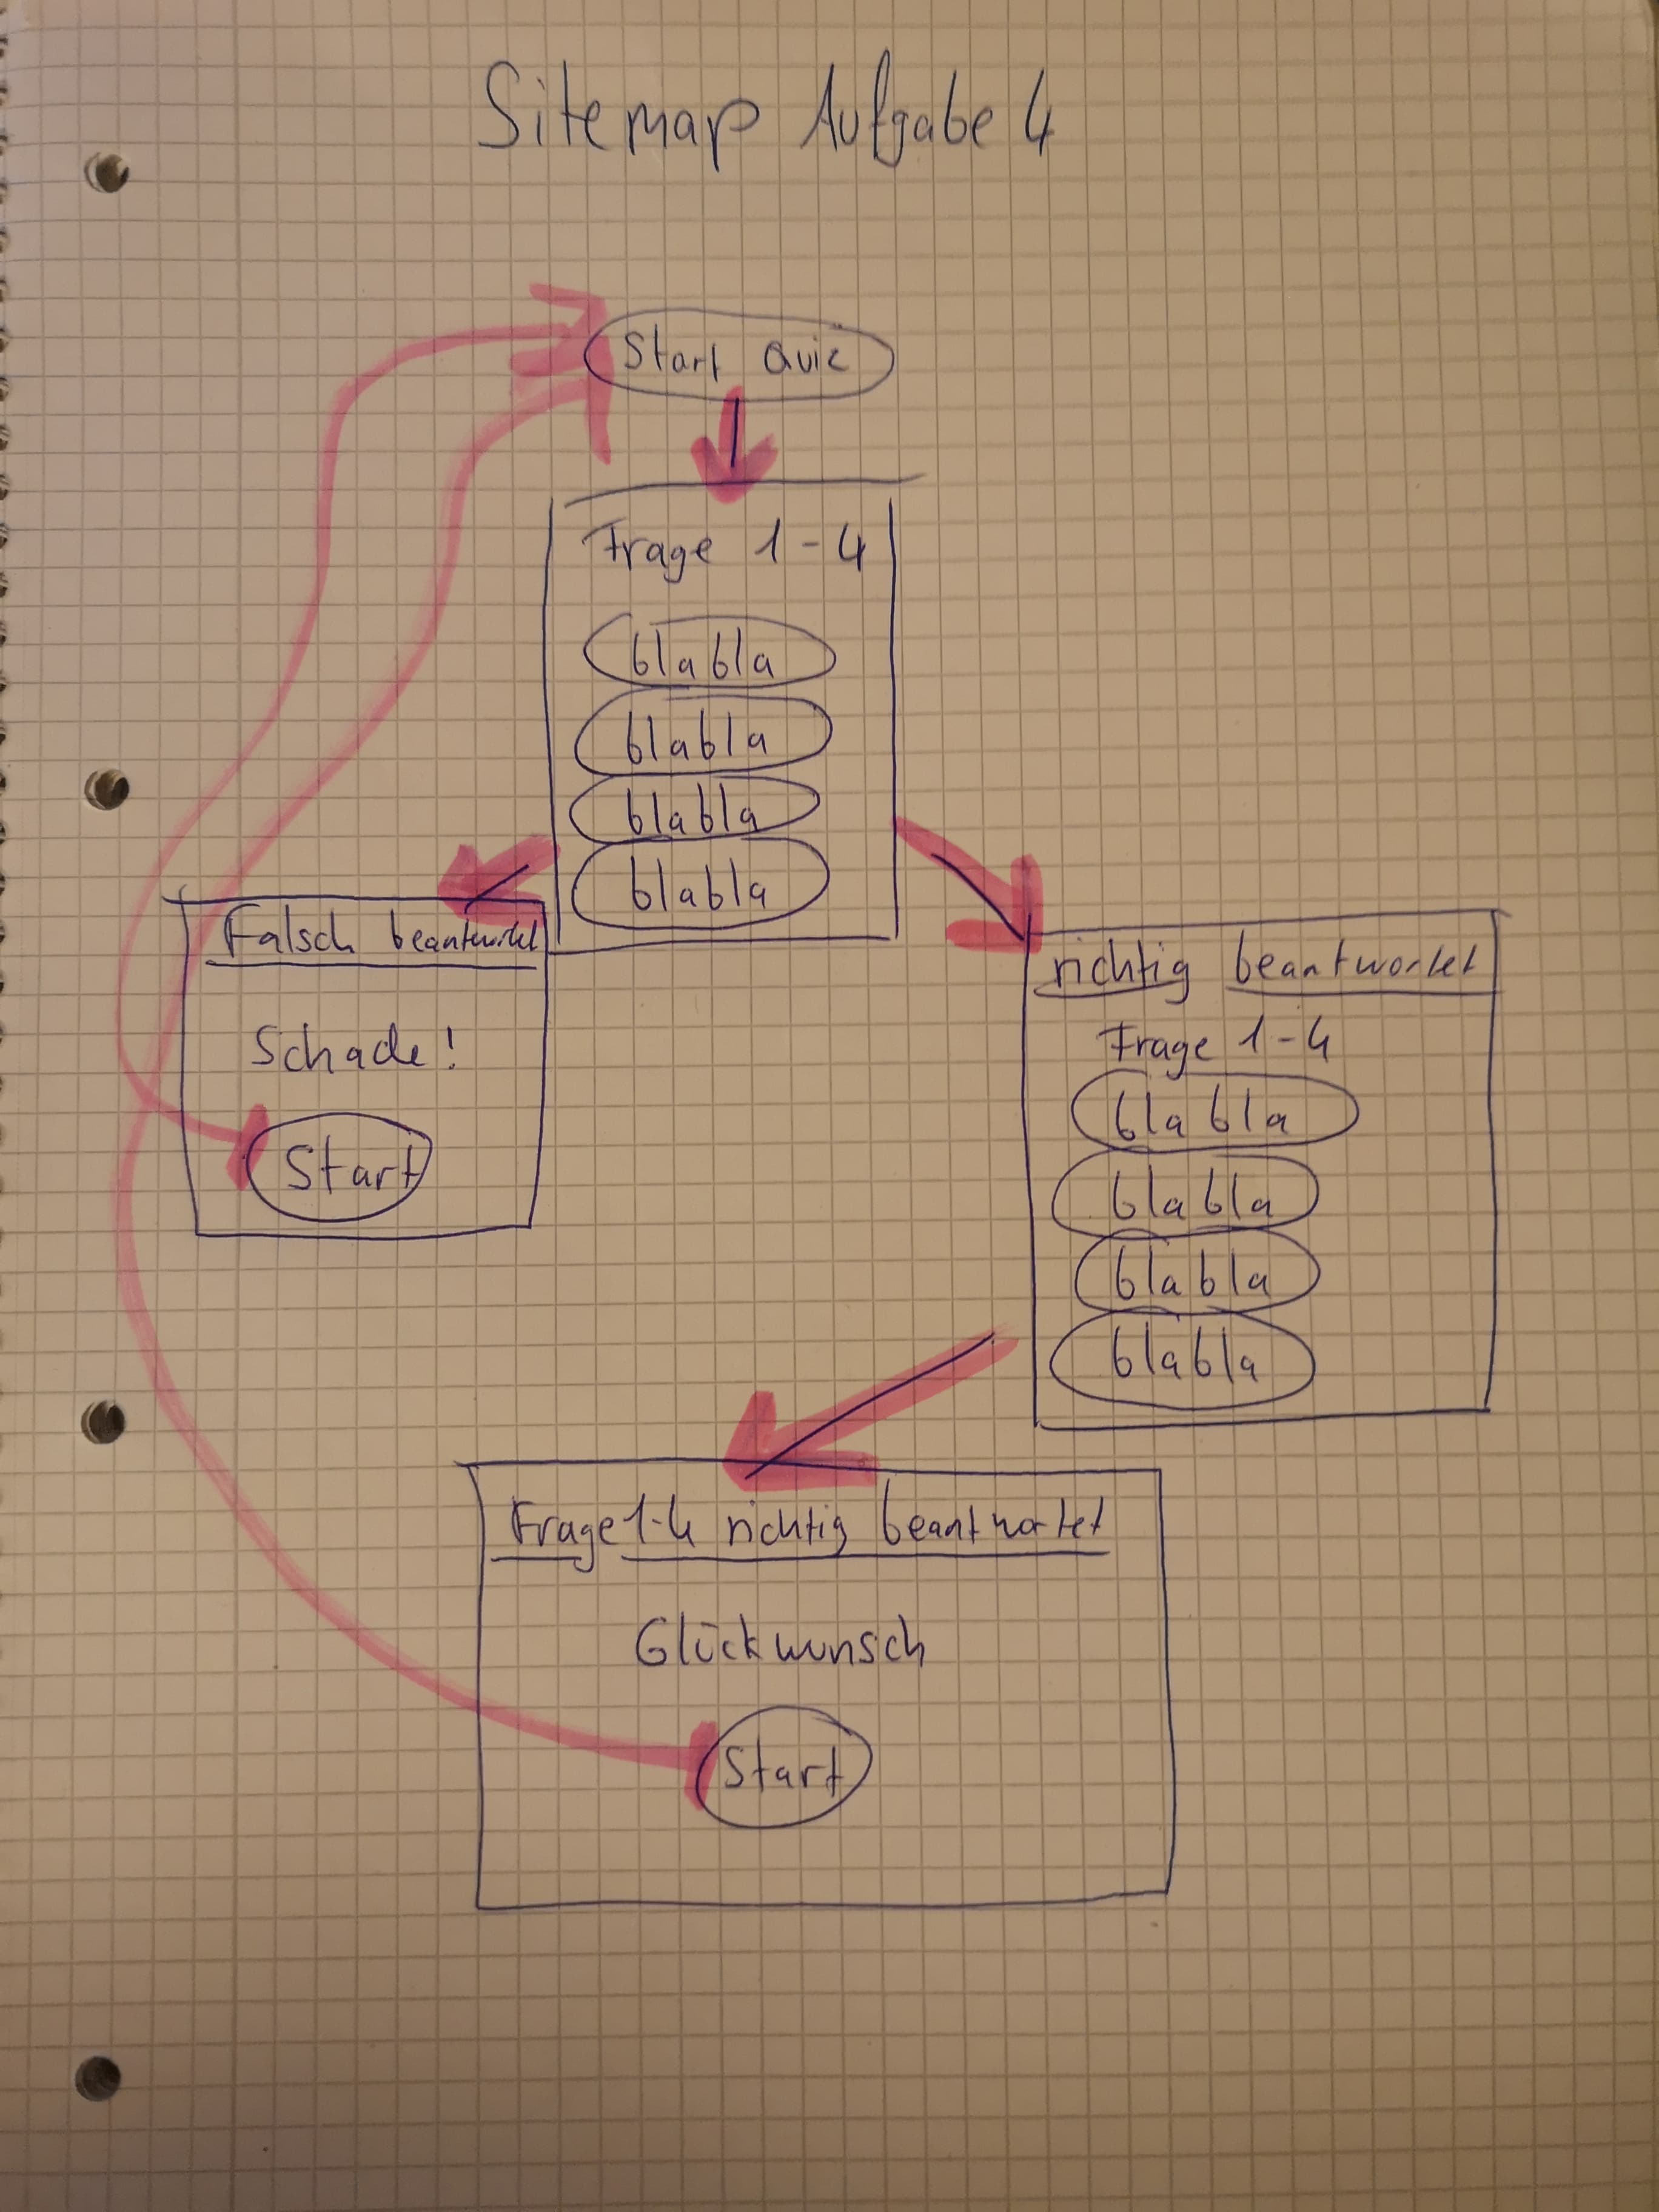 Sitemap Aufgabe 4
Start Quiz
Frage 1-4
blabla
blabla
blabla
blabla
Falsch beantwortet
Schade!
Start
richtig beantwortet
Frage 1-4
bla bla
bla bla
bla bla
blabla
Frage 1-4 richtig beantwortet
Glückwunsch
Start